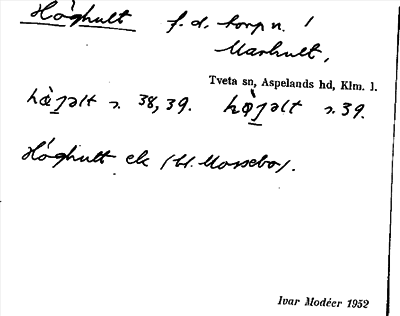 Höghult f. d. torp u. /
Marhult,
Tveta sn, Aspelands hd, Klm. l.
s. 38, 39. s. 39.
Höghult ek (bl. Mossebo).
Ivar Modéer 1952